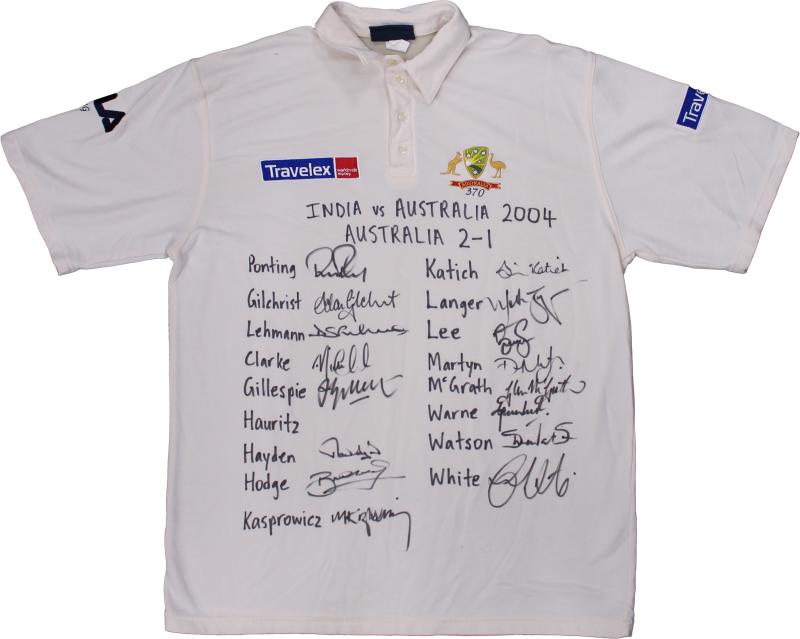 LA
Travelex worldwide money
Trav
AUSTRALIA
370
INDIA vs AUSTRALIA 2004
AUSTRALIA 2-1
Ponting
Gilchrist
Lehmann
Clarke
Gillespie
Hauritz
Hayden
Hodge
Kasprowicz
Katich
Langer
Lee
Martyn
McGrath
Warne
Watson
White